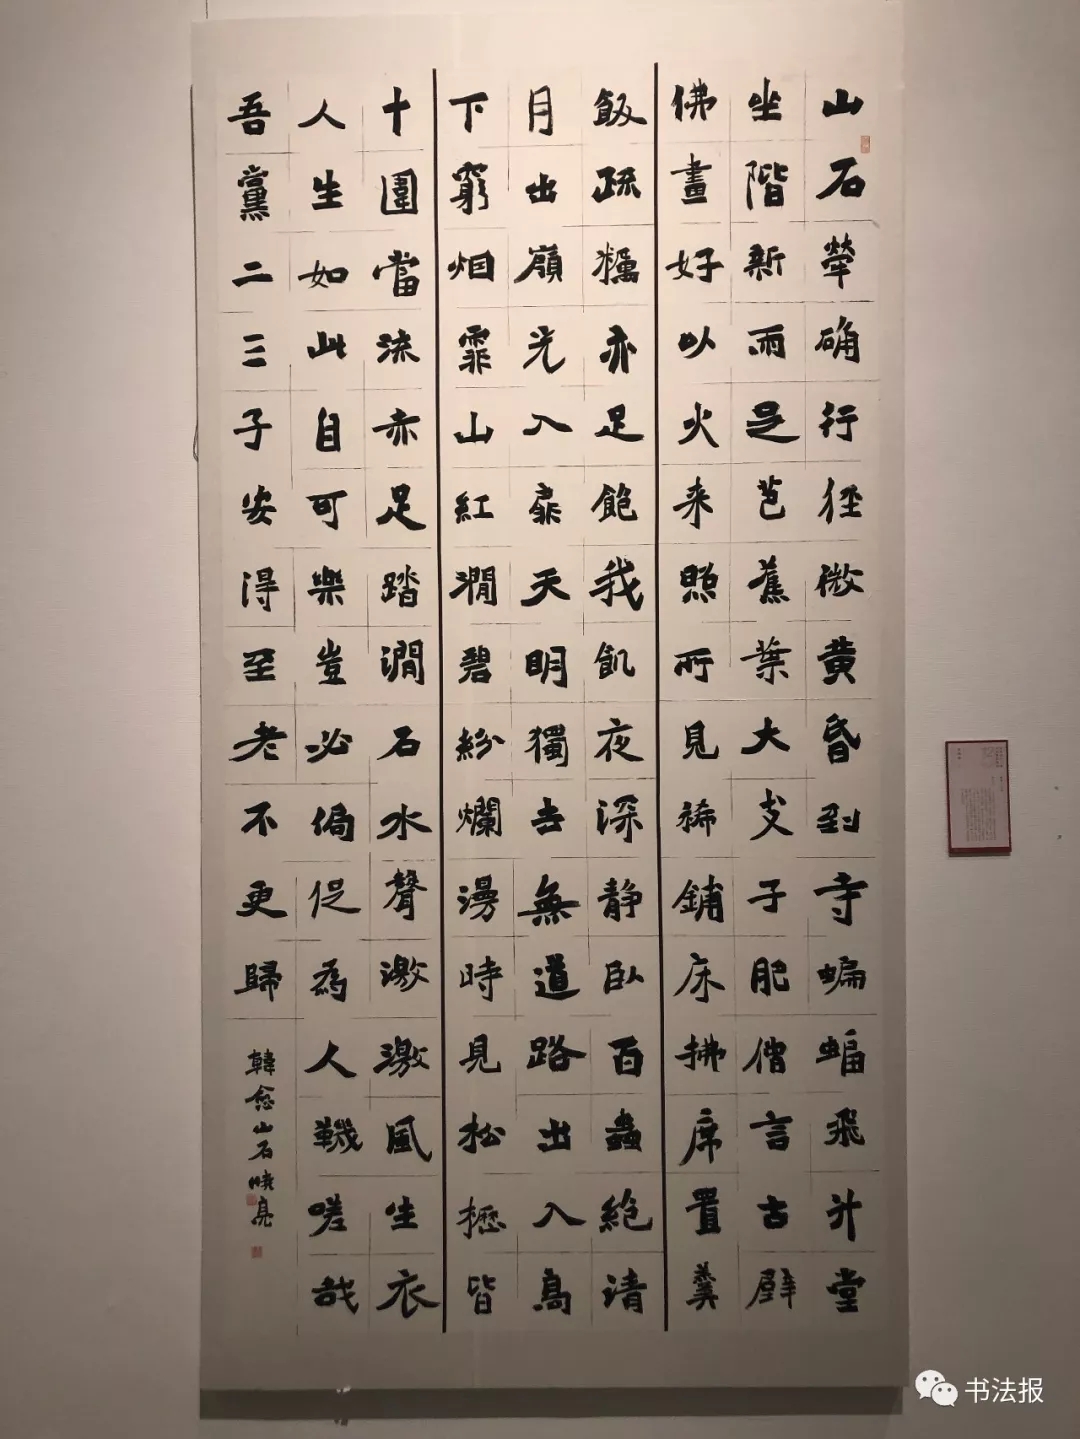 山石犖确行徑微黄昏到寺蝙蝠飛升堂
坐階新雨足芭蕉葉大支子肥僧言古壁
佛畫好以火来照所見稀鋪床拂席置羹
飯疏糲亦足飽我飢夜深静臥百蟲絶清
月出嶺光入扉天明獨去無道路出入高
下窮烟霏山紅澗碧紛爛漫時見松櫪皆
十圍當流赤足踏澗石水聲激激風生衣
人生如此自可樂豈必侷促為人鞿嗟哉
吾黨二三子安得至老不更歸
韓愈山石曉亮
书法报